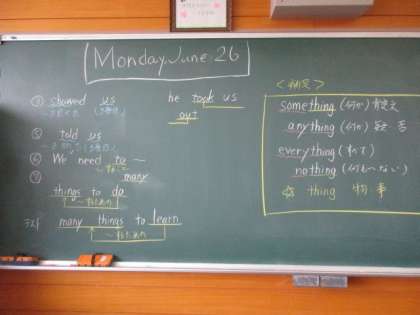 Monday, June 26
③ showed us
he took us
out
⑤ told us
⑥ We need to ~
⑦ many
things to do
many things to learn
something (何か) 肯定文
anything (何か) 疑 否
everything (すべて)
nothing (何も~ない)
☆ thing 物・事